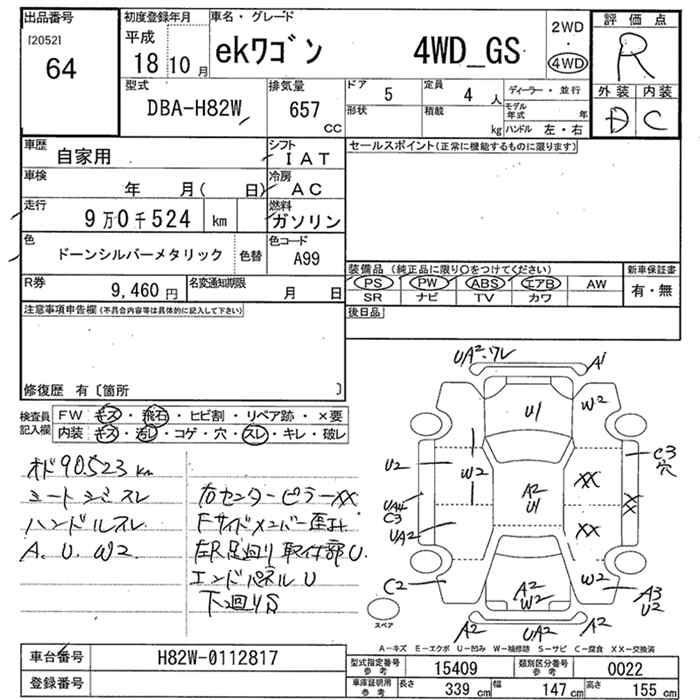 出品番号
[2052]
64
初度登録年月
平成
18 10 月
車名・グレード
ekワゴン 4WD_GS
2WD
・
4WD
評価点
R
外装 内装
D C
型式
DBA-H82W
排気量
657
CC
ドア
5
定員
4 人
形状
積載
kg
ディーラー・並行
モデル年式 年
ハンドル 左・右
車歴
自家用
シフト
IAT
車検
年 月( 日)
冷房
AC
走行
9万0千524 km
燃料
ガソリン
色
ドーンシルバーメタリック
色替
色コード
A99
R券
9,460 円
名変通知期限
月 日
セールスポイント(正常に機能するものに限ります)
装備品 (純正品に限り○をつけてください)
PS PW ABS エアB AW
SR ナビ TV カワ
新車保証書
有・無
後日品
注意事項申告欄(不具合内容等は具体的に記入して下さい)
修復歴 有〔箇所 〕
検査員記入欄
FW キズ・飛石・ヒビ割・リペア跡・×要
内装 キズ・汚レ・コゲ・穴・スレ・キレ・破レ
オド90,523km
シートシミスレ
ハンドルスレ
A. U. W2
右センターピラーXX
Fサイドメンバー歪計
左R足廻り取付部U.
エンドパネルU
下廻りS
UA2・ワレ
A1
U1
W2
U2
W2
C3
穴
XX
XX
UA4
C3
A2
U1
XX
UA2
C2
A2
W2
W2
A3
U2
A2
UA2
A2
スペア
A－キズ E－エクボ U－凹み W－補修跡 S－サビ C－腐食 XX－交換済
車台番号
H82W-0112817
登録番号
型式指定番号
参考
15409
類別区分番号
参考
0022
車庫証明用
参考
長さ
339 cm
幅
147 cm
高さ
155 cm